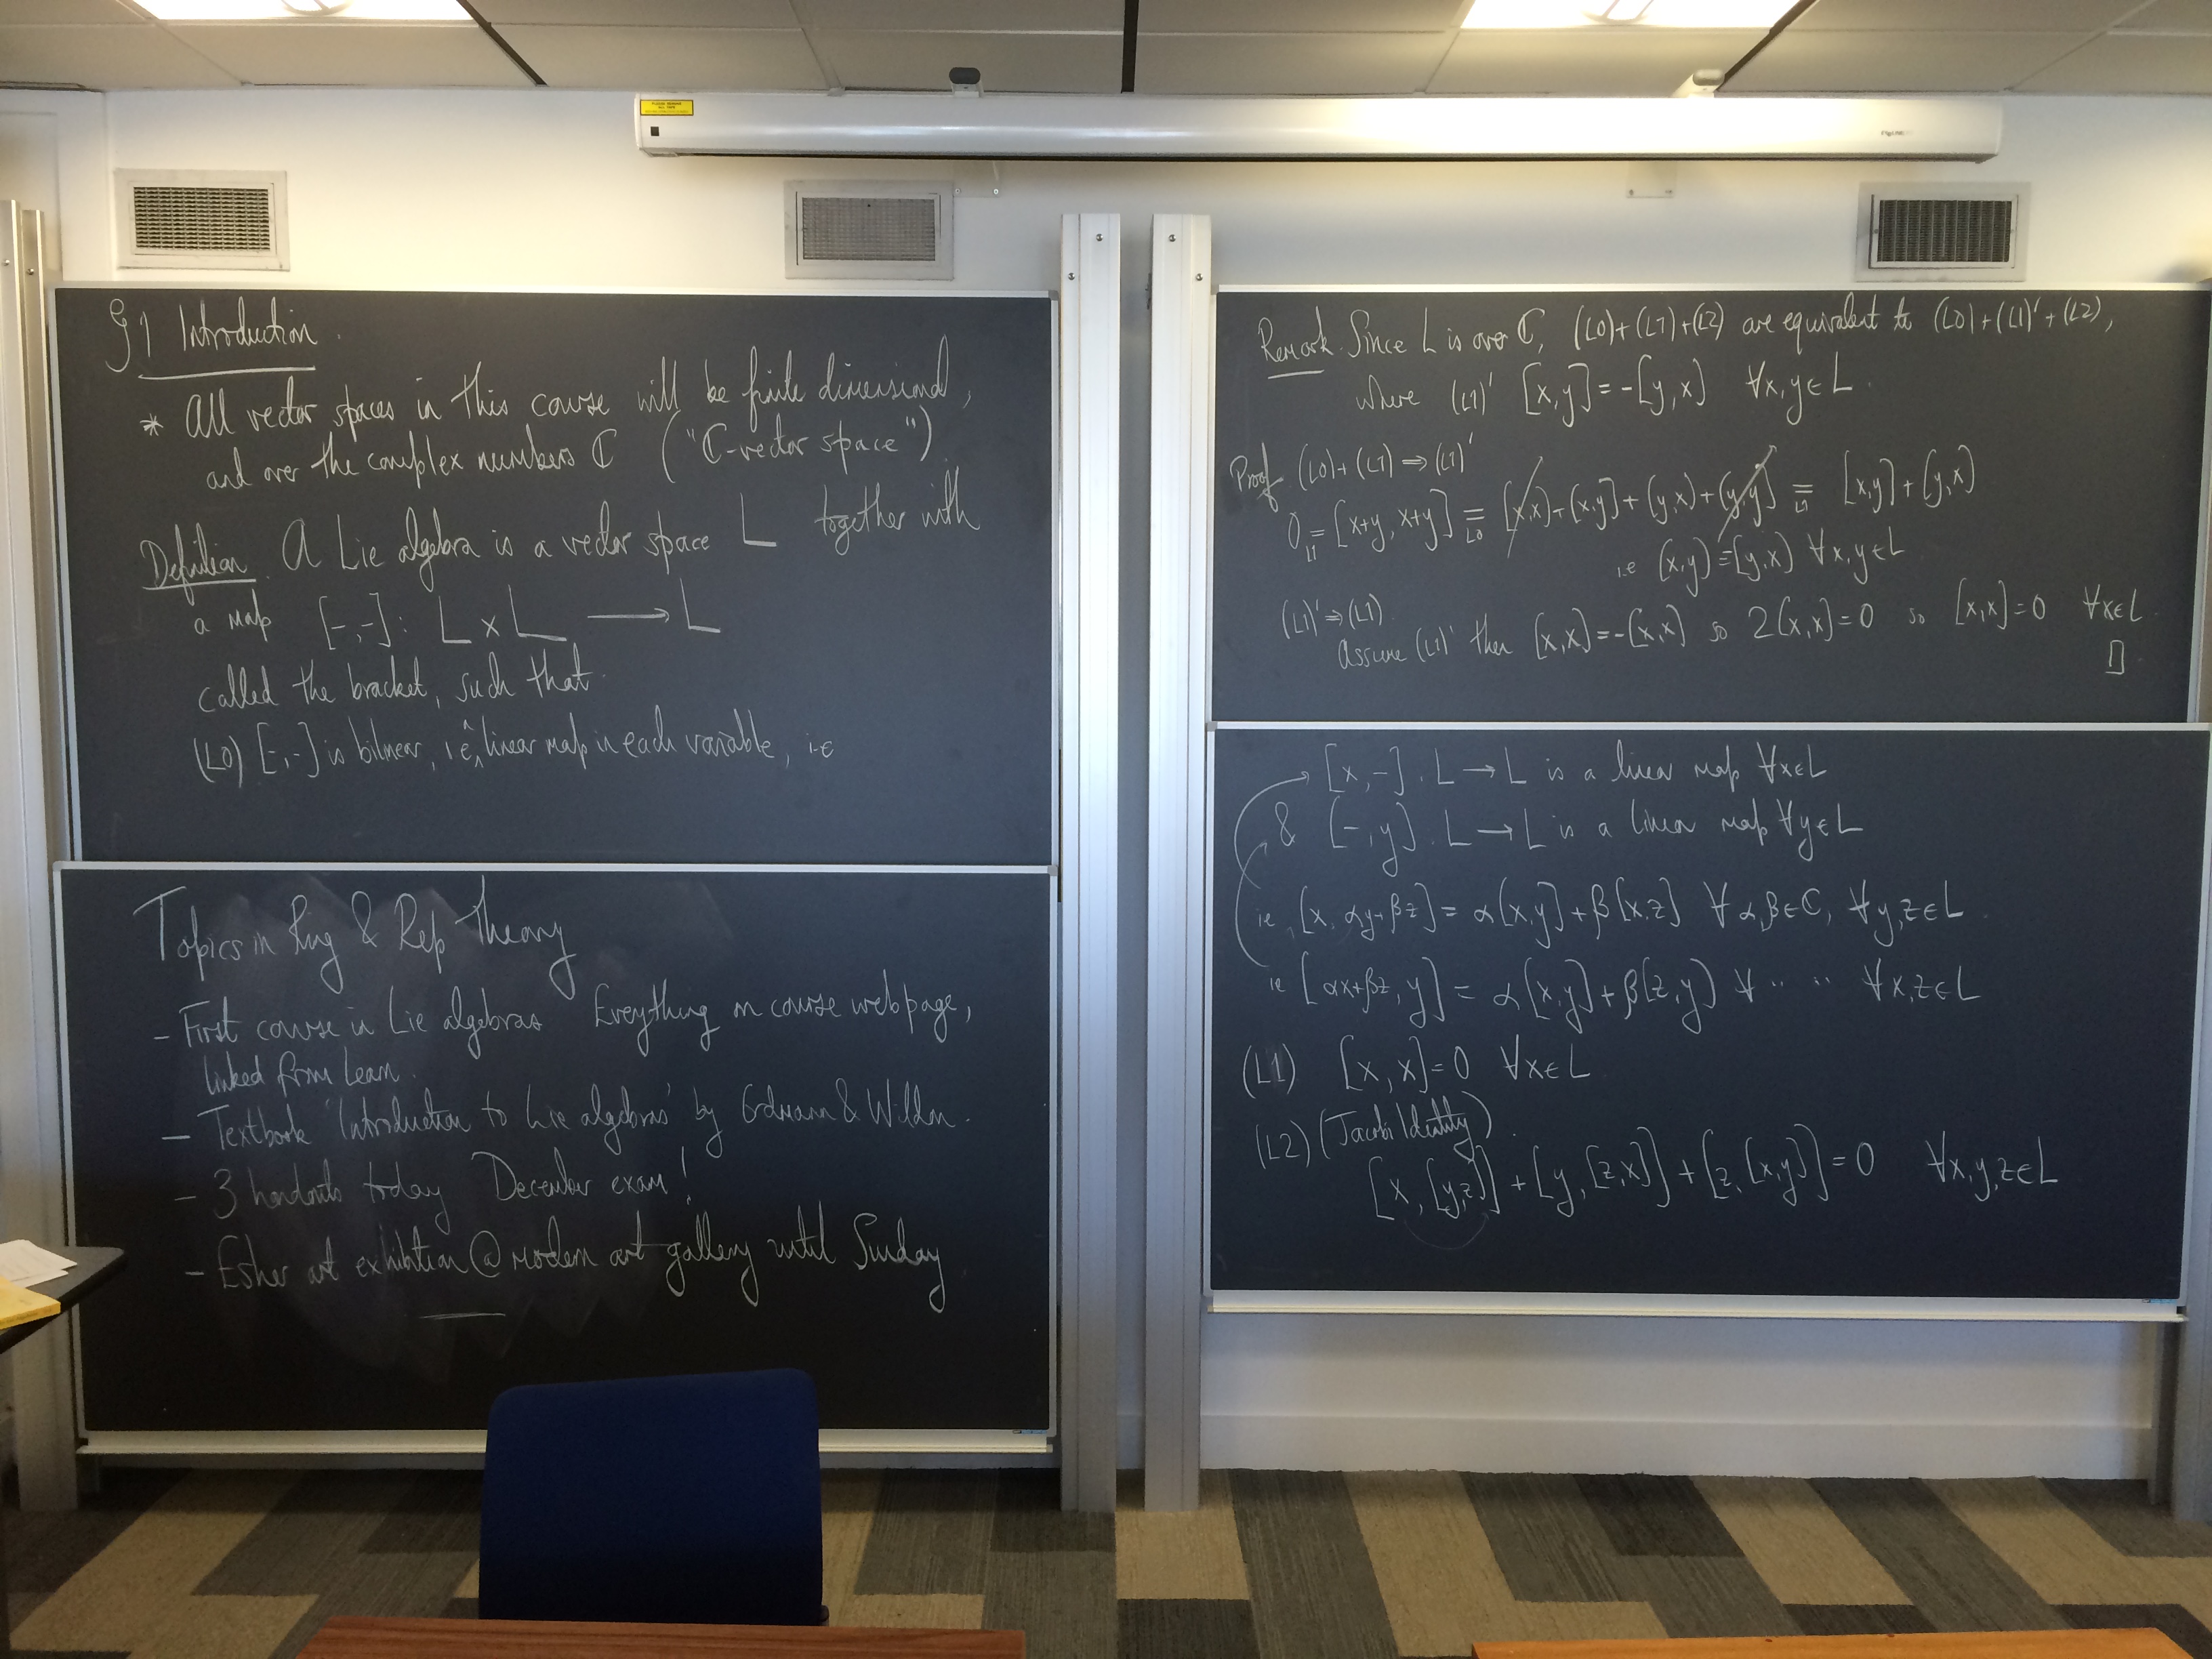 §1 Introduction.
* All vector spaces in this course will be finite dimensional,
and over the complex numbers ℂ ("ℂ-vector space").
Definition. A Lie algebra is a vector space L together with
a map [-,-]: L × L → L
called the bracket, such that
(L0) [-,-] is bilinear, i.e. ^ linear map in each variable, i.e
Topics in Ring & Rep Theory
- First course in Lie algebras Everything on course webpage,
linked from Learn.
- Textbook 'Introduction to Lie algebras' by Erdmann & Wildon.
- 3 handouts today December exam!
- Esher art exhibition @ modern art gallery until Sunday
Remark. Since L is over ℂ, (L0)+(L1)+(L2) are equivalent to (L0)+(L1)'+(L2),
where (L1)' [x,y]=-[y,x] ∀x,y∈L.
Proof (L0)+(L1) ⇒ (L1)'
0 =_{L1} [x+y, x+y] =_{L0} [x,x]+[x,y]+[y,x]+[y,y] =_{L1} [x,y]+[y,x]
i.e [x,y]=-[y,x] ∀x,y∈L
(L1)' ⇒ (L1).
Assume (L1)' then [x,x]=-[x,x] so 2[x,x]=0 so [x,x]=0 ∀x∈L.
□
[x,-]: L → L is a linear map ∀x∈L
& [-,y]: L → L is a linear map ∀y∈L
ie [x, αy+βz] = α[x,y]+β[x,z] ∀α,β∈ℂ, ∀y,z∈L
ie [αx+βz, y] = α[x,y]+β[z,y] ∀ " " ∀x,z∈L
(L1) [x,x]=0 ∀x∈L
(L2) (Jacobi Identity).
[x,[y,z]]+[y,[z,x]]+[z,[x,y]]=0 ∀x,y,z∈L